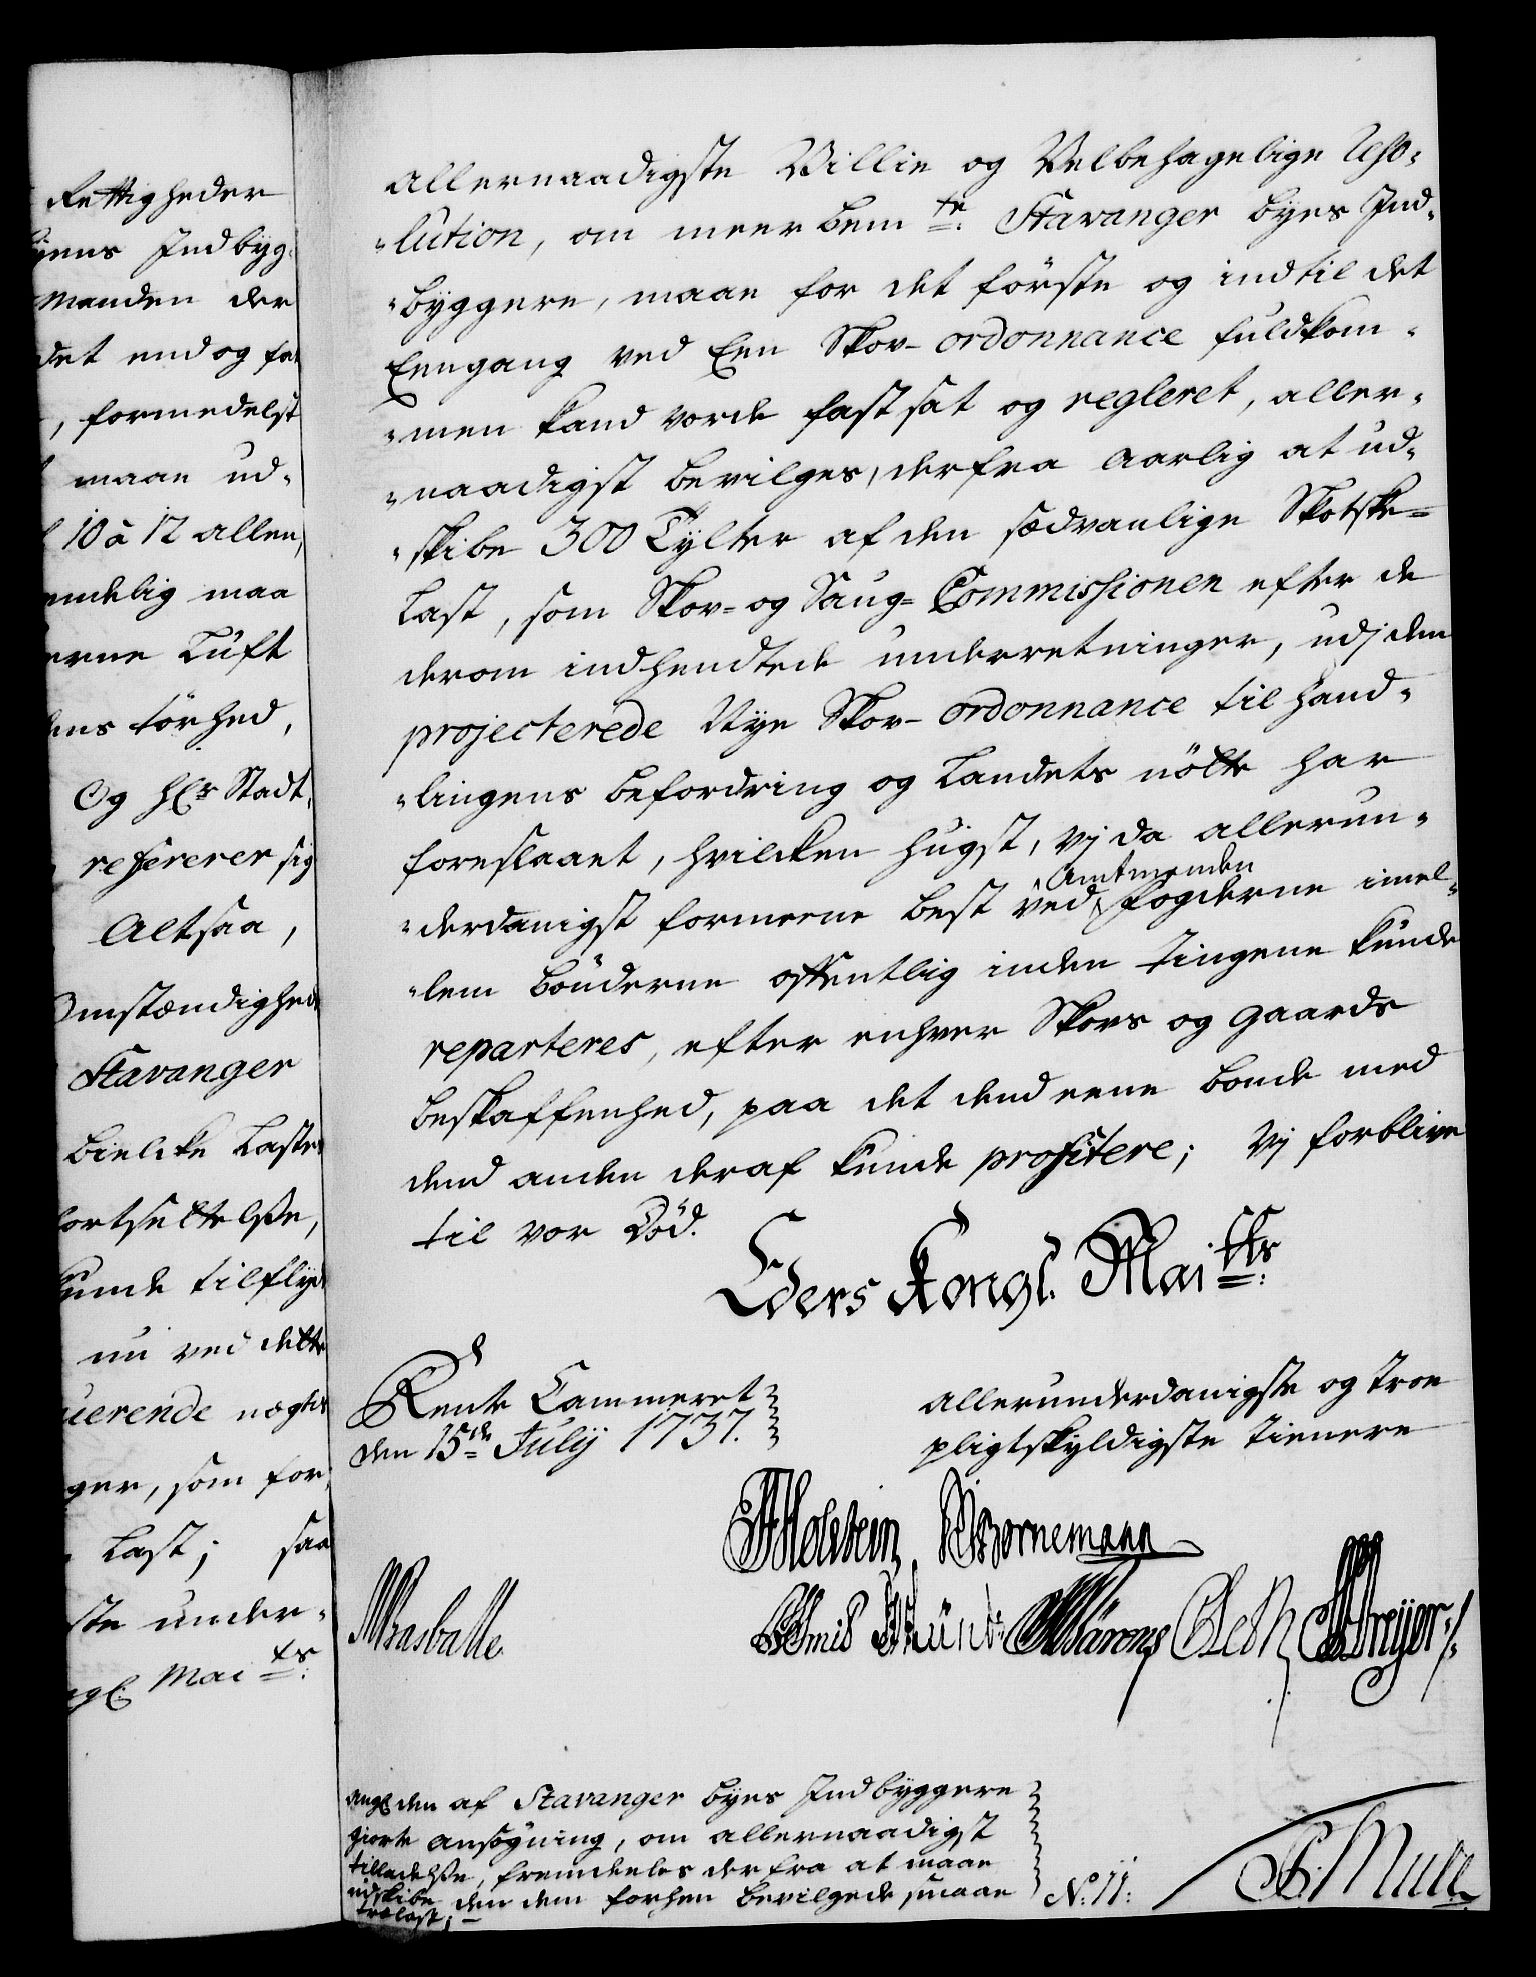 Rettigheder
yens Indbyg-
manden der
det endog fo
, formedelst
maae ud-
10 à 12 allen,
endelig maa
erne Luft
ens törhed,
Og Hr Stadt-
refererer sig
Altsaa,
Omstændighed
Stavanger
bielcke Laster
fortsettelsze,
kunde tilflyd
nu ved dette
uerende
ger, som for
Last; saa
ste under-
ngl. Mai ts:
allernaadigste Villie og Velbehagelige Reso-
-lution, om meerbem te: Stavanger byes Ind-
-byggere, maae for det förste og indtil det
Eengang ved Een Skov-ordonnance fuldkom-
-men kand vorde fastsat og regleret, aller-
-naadigst bevilges, derfra aarlig at ud-
-skibe 300 Tylter af den sædvanlige Skotske-
Last, som Skov- og Saug-Commissionen efter de
derom indhendtede underretninger, udj den
projecterede Nye Skov-ordonnance til hand-
-lingens befordring og Landets nötte har
foreslaaet, hvilcken hugst, Vj da allerun-
Amtmanden
-derdanigst formeene best ved fogderne imel-
-lem bönderne offentlig inden tingene kunde
reparteres, efter enhver Skovs og Gaards
beskaffenhed, paa det dend eene bonde med
dend anden deraf kunde profitere; Vj forblive
til vor Död.
Eders Kongl. Mai tts:
Rente Cammeret
den 15de July 1737.
allerunderdanigste og troe
pligtskyldigste tienere
Holstein Bornemann
Basballe
Smid
Dreyer
ang. den af Stavanger byes Indbyggere
giorte ansögning, om allernaadigst
tilladelsze, fremdeeles derfra at maae
udskibe den dem forhen bevilgede smaae
trælast;
No: 11:
Müll